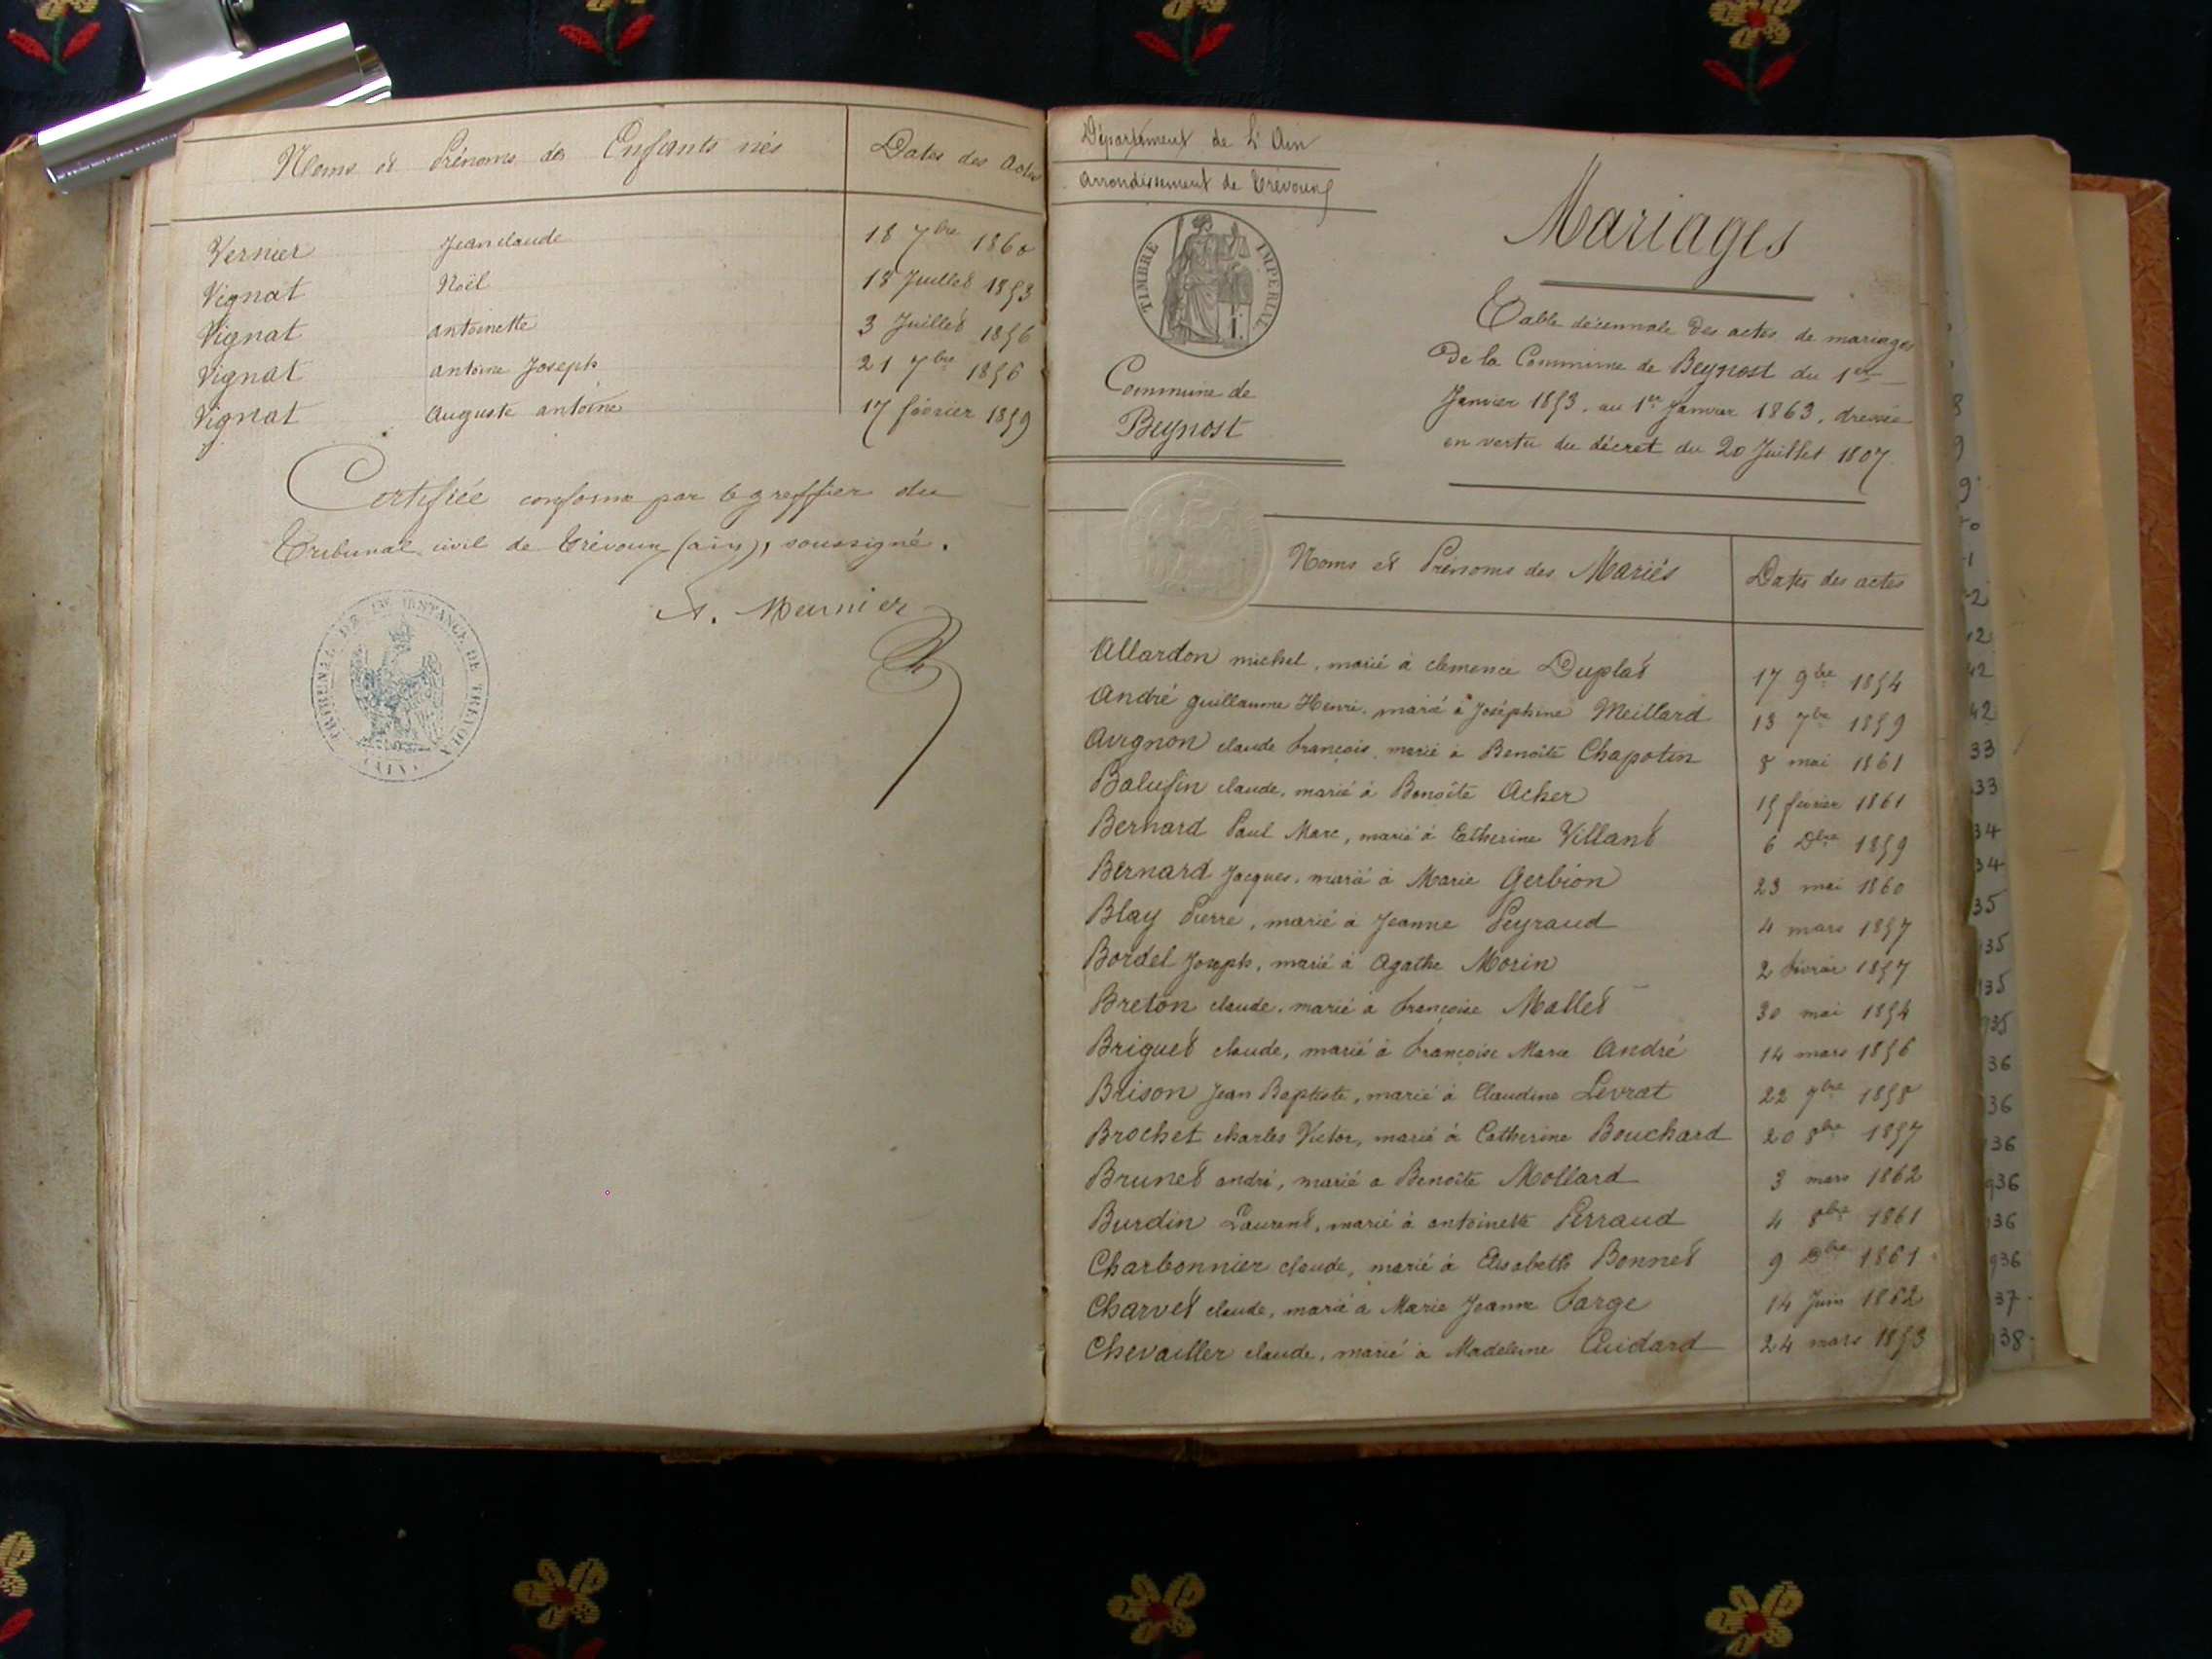 Noms et Prénoms des Enfants nés Dates des Actes
Vernier Jean claude 18 7bre 1860
Vignat Noël 18 Juillet 1853
Vignat antoinette 3 Juillet 1856
Vignat antoine Joseph 21 7bre 1856
Vignat auguste antoine 17 février 1859
Certifiée conforme par le greffier du
Tribunal civil de Trévoux (ain), soussigné.
A. Meunier
TRIBUNAL DE 1RE INSTANCE DE TREVOUX
(AIN)
Département de L'Ain
arrondissement de Trévoux
TIMBRE IMPERIAL
Commune de
Beynost
Mariages
Table décennale des actes de mariages
De la Commune de Beynost du 1er
Janvier 1853, au 1er Janvier 1863, dressée
en vertu du décret du 20 Juillet 1807.
Noms et Prénoms des Mariés Dates des actes
Allardon michel, marié à clemence Duplat 17 9bre 1854
André guillaume Henri, marié à Joséphine Meillard 13 7bre 1859
Avignon claude françois, marié à Benoîte Chapotin 8 mai 1861
Balufin claude, marié à Benoîte Acher 15 février 1861
Bernard Paul Marc, marié à Catherine Villant 6 Dbre 1859
Bernard Jacques, marié à Marie Gerbion 23 mai 1860
Blay Pierre, marié à Jeanne Peyraud 4 mars 1857
Bordel Joseph, marié à Agathe Morin 2 février 1857
Breton claude, marié à françoise Mallet 30 mai 1854
Briguet claude, marié à françoise Marie André 14 mars 1856
Brison Jean Baptiste, marié à Claudine Levrat 22 7bre 1858
Brochet charles Victor, marié à Catherine Bouchard 20 8bre 1857
Brunet andré, marié a Benoîte Mollard 3 mars 1862
Burdin Laurent, marié à antoinette Perraud 4 8bre 1861
Charbonnier claude, marié à Elisabeth Bonnet 9 Dbre 1861
Charvet claude, marié à Marie Jeanne Farge 14 Juin 1862
Chevailler claude, marié à Madeleine Cuidard 24 mars 1853